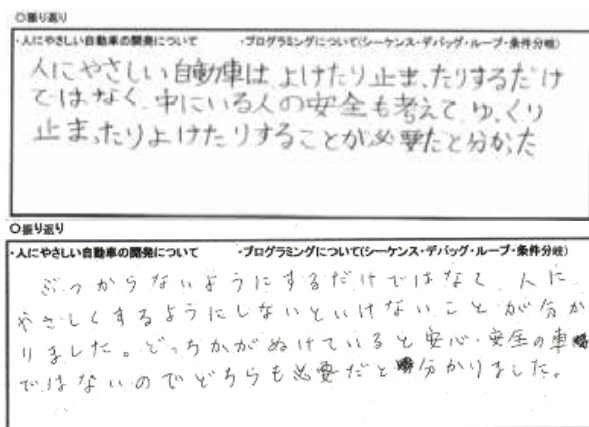 ○振り返り
・人にやさしい自動車の開発について ・プログラミングについて(シーケンス・デバッグ・ループ・条件分岐)
人にやさしい自動車は よけたり止まったりするだけ
ではなく、中にいる人の安全も考えて ゆっくり
止まったりよけたりすることが必要だと分かった
○振り返り
・人にやさしい自動車の開発について ・プログラミングについて(シーケンス・デバッグ・ループ・条件分岐)
ぶつからないようにするだけではなく、人に
やさしくするようにしないといけないことが分か
りました。どっちかがぬけていると安心・安全の車
ではないのでどちらも必要だと分かりました。